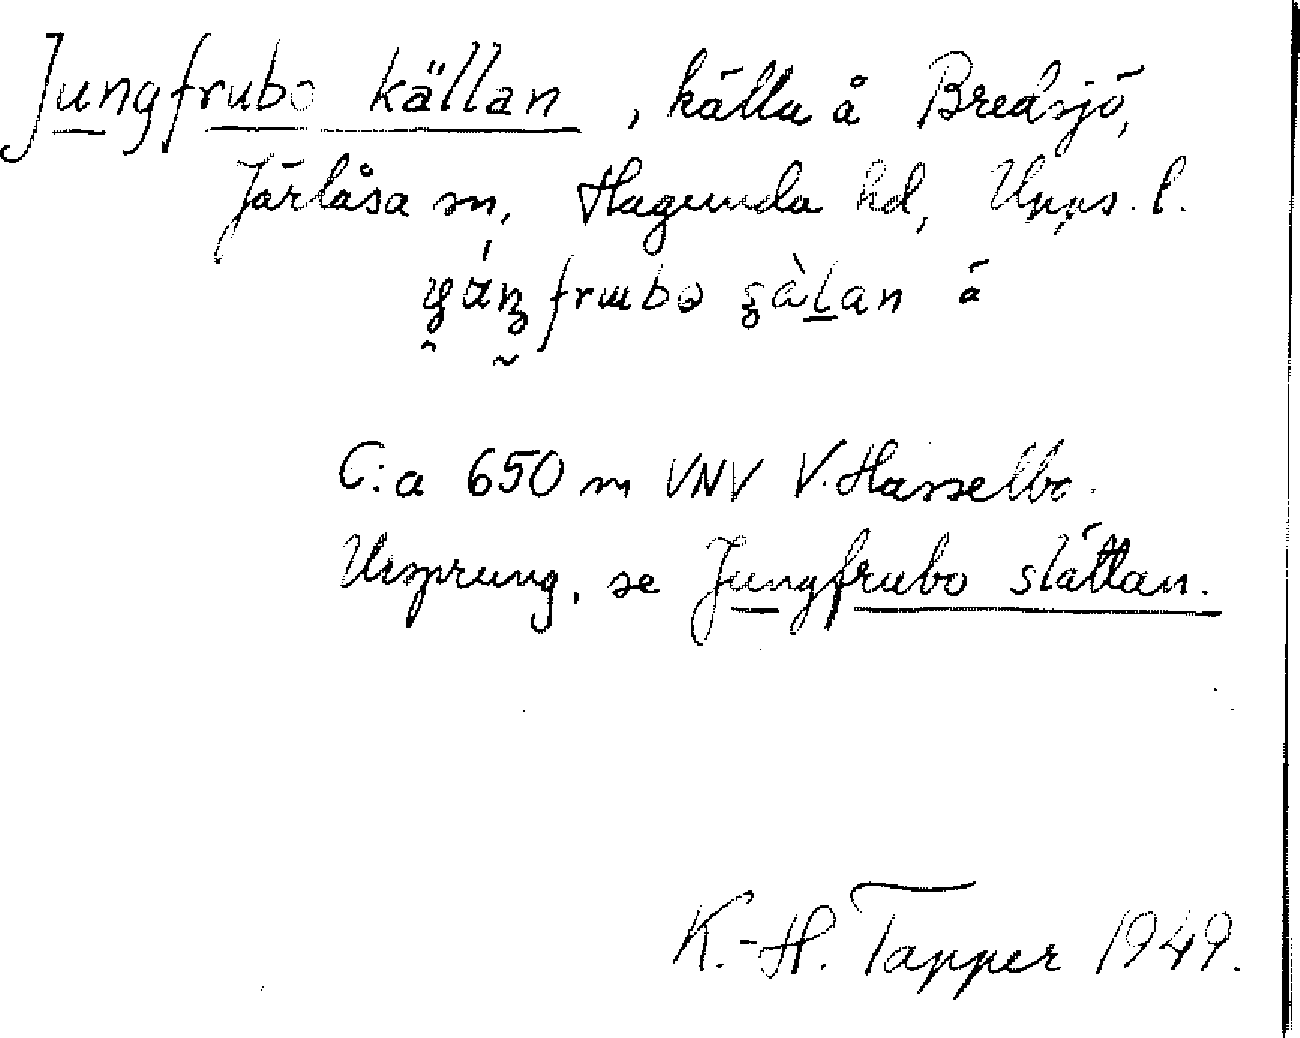 Jungfrubo källan, källa å Bredsjö,
Järlåsa sn, Hagunda hd, Upps. l.
frɯbo å
C:a 650 m VNV V. Hässelbo.
Ursprung, se Jungfrubo slättan.
K.-H. Tapper 1949.